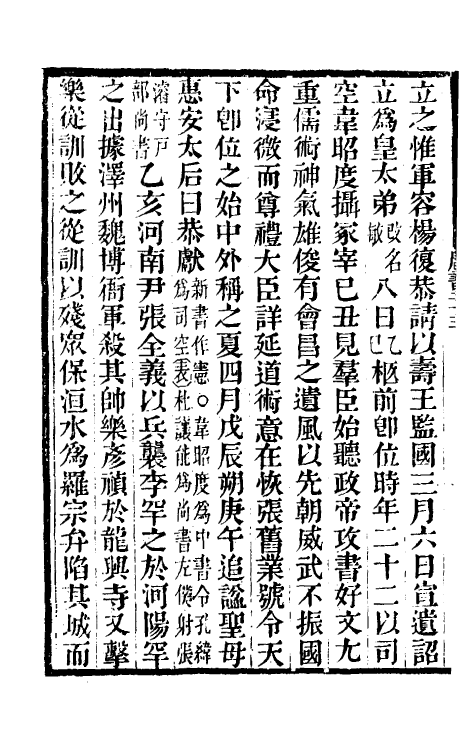 立之惟軍容楊復恭請以壽王監國三月六日宣遺詔
立爲皇太弟改名敏八日乙巳柩前卽位時年二十二以司
空韋昭度攝冢宰巳丑見羣臣始聽政帝攻書好文尤
重儒術神氣雄俊有會昌之遺風以先朝威武不振國
命寖微而尊禮大臣詳延道術意在恢張舊業號令天
下卽位之始中外稱之夏四月戊辰朔庚午追謚聖母
惠安太后曰恭獻新書作憲○韋昭度爲中書令孔緯爲司空表杜讓能爲尚書左僕射張
濬守戸部尚書乙亥河南尹張全義以兵襲李罕之於河陽罕
之出據澤州魏博衙軍殺其帥樂彥禎於龍興寺又擊
樂從訓敗之從訓以殘衆保洹水爲羅宗弁陷其城而